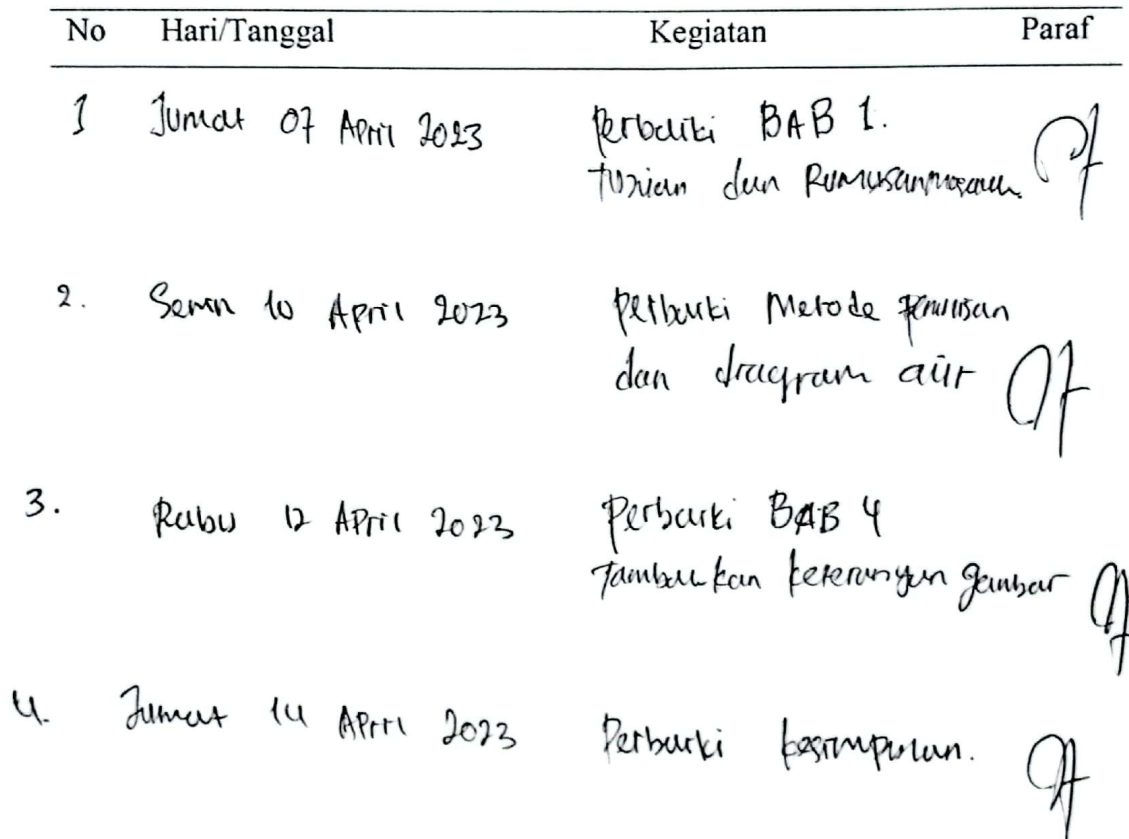 No Hari/Tanggal Kegiatan Paraf
1 Jumat 07 April 2023 Perbaiki BAB 1.
Tujuan dan Rumusan masalah
2. Senin 10 April 2023 Perbaiki Metode penulisan
dan diagram alir
3. Rabu 12 April 2023 Perbaiki BAB 4
Tambahkan keterangan gambar
4. Jumat 14 April 2023 Perbaiki kesimpulan.